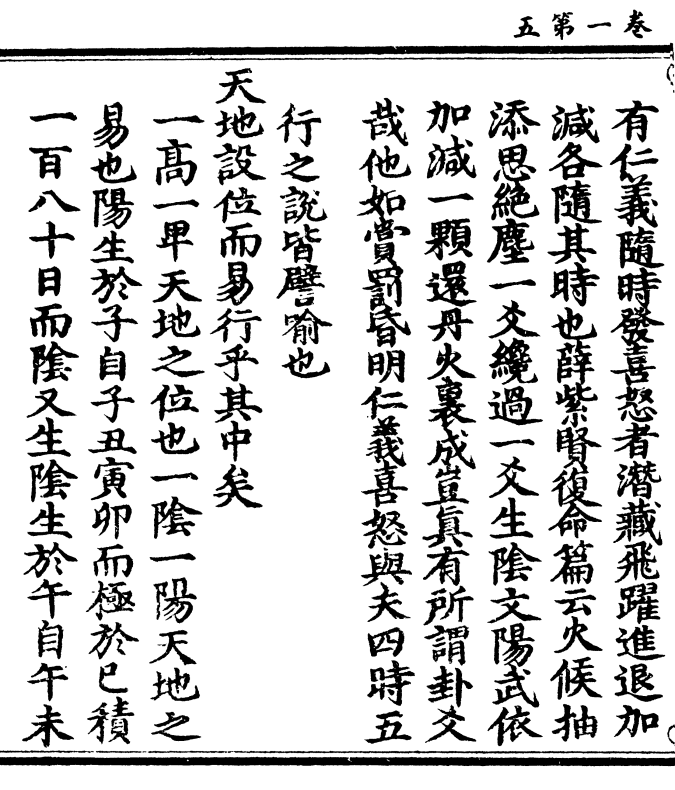 卷一第五
有仁義隨時發喜怒者潛藏飛躍進退加
減各隨其時也薛紫賢復命篇云火候抽
添思絕塵一爻纔過一爻生陰文陽武依
加減一顆還丹火裏成豈眞有所謂卦爻
哉他如賞罰昏明仁義喜怒與夫四時五
行之說皆譬喻也
天地設位而易行乎其中矣
一高一𤰞天地之位也一陰一陽天地之
易也陽生於子自子丑寅卯而極於巳積
一百八十日而陰又生陰生於午自午未